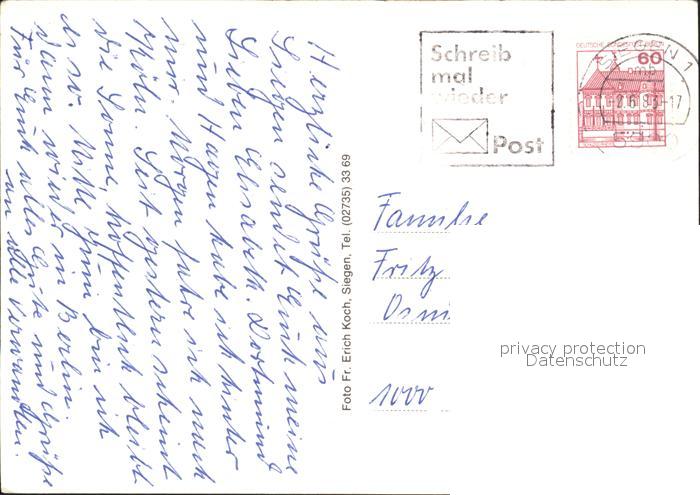 Herzliche Grüße aus
Siegen sendet Euch meine
Lieben Elisabeth. Dortmund
und Hagen habe ich hinter
mir. Morgen fahre ich nach
Köln. Seit gestern scheint
die Sonne, hoffentlich bleibt
es so. Mitte Juni bin ich
dann wieder in Berlin.
Für Euch alles Gute und Grüße
an alle Verwandten.
Foto Fr. Erich Koch, Siegen, Tel. (02735) 33 69
Schreib
mal
wieder
Post
DEUTSCHE BUNDESPOST BERLIN
60
SIEGEN 1
-17
5900
Familie
Fritz
1000
privacy protection
Datenschutz